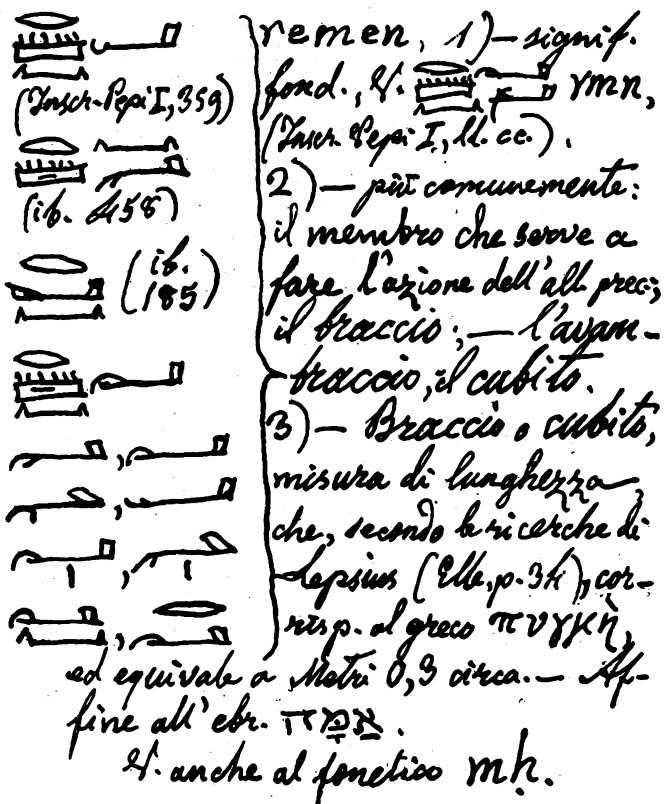 remen, 1)— signif.
fond., V. 𓂋𓏠𓈖𓂝𓂡 rmn,
(Inscr. Pepi I, ll. cc.).
2)— più comunemente:
il membro che serve a
fare l'azione dell'all. prec.;
il braccio; — l'avam-
braccio, il cubito.
3)— Braccio o cubito,
misura di lunghezza,
che, secondo le ricerche di
Lepsius (Elle, p. 34), cor-
risp. al greco πυγμὴ,
ed equivale a Metri 0,3 circa. — Af-
fine all'ebr. אַמָּה.
V. anche al fonetico mḥ.
(Inscr. Pepi I, 359)
(ib. 458)
(ib.
185)